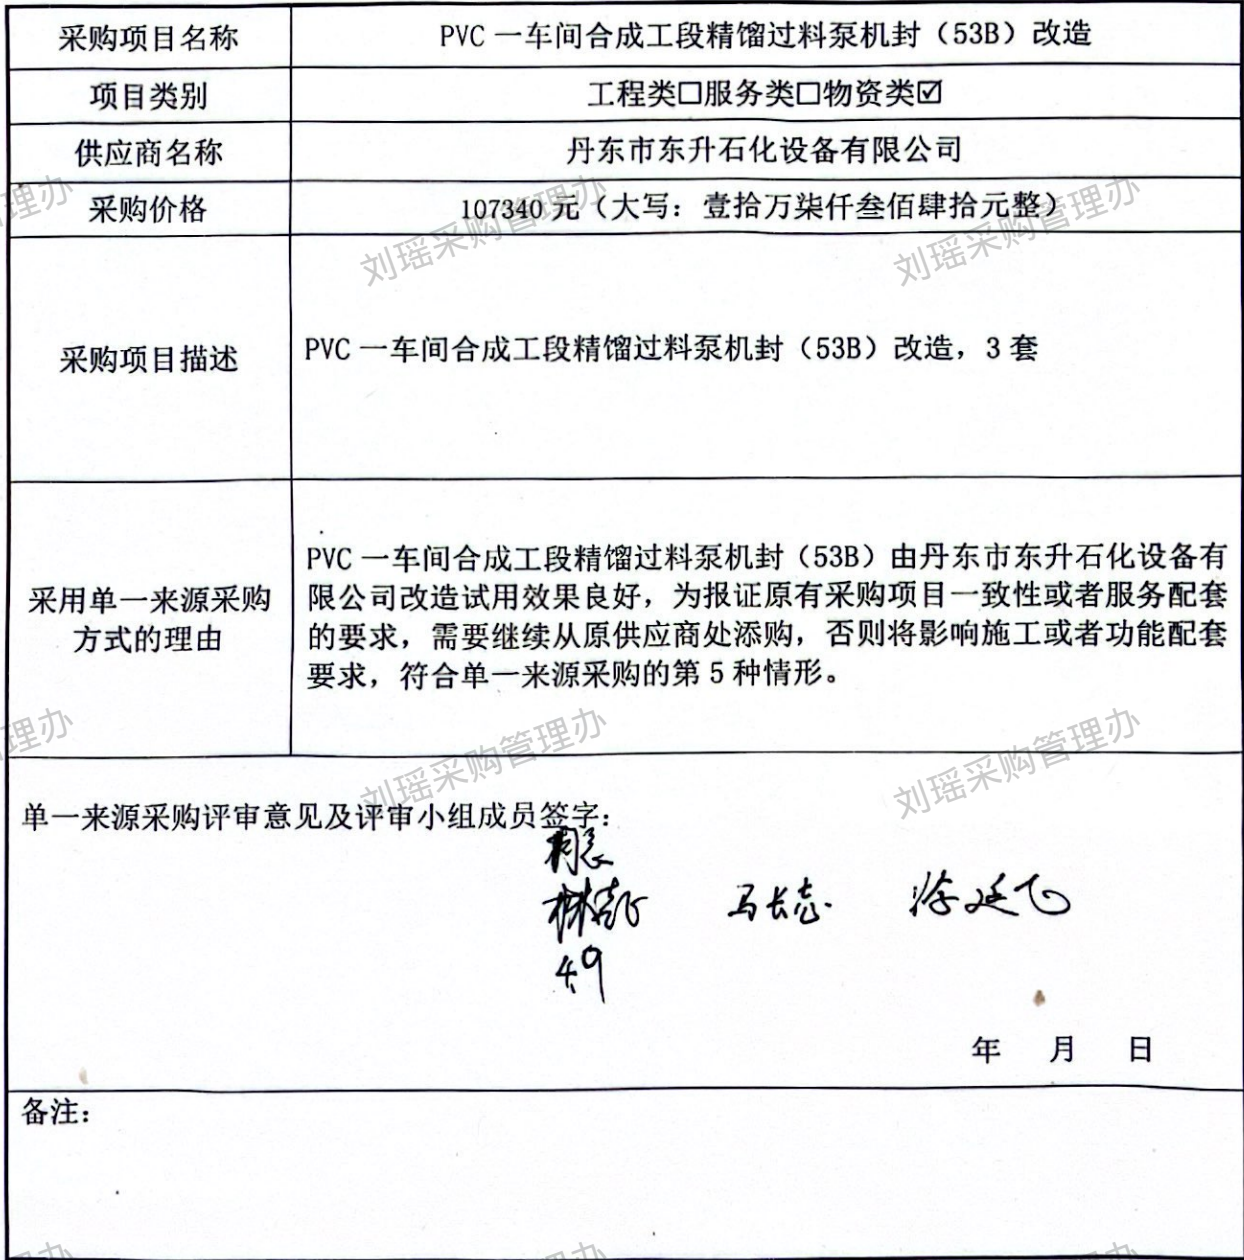 采购项目名称
PVC 一车间合成工段精馏过料泵机封（53B）改造
项目类别
工程类☐服务类☐物资类☑
供应商名称
丹东市东升石化设备有限公司
采购价格
107340 元（大写：壹拾万柒仟叁佰肆拾元整）
采购项目描述
PVC 一车间合成工段精馏过料泵机封（53B）改造，3 套
采用单一来源采购
方式的理由
PVC 一车间合成工段精馏过料泵机封（53B）由丹东市东升石化设备有
限公司改造试用效果良好，为报证原有采购项目一致性或者服务配套
的要求，需要继续从原供应商处添购，否则将影响施工或者功能配套
要求，符合单一来源采购的第 5 种情形。
单一来源采购评审意见及评审小组成员签字：
马长志
徐廷飞
年 月 日
备注：
理办
刘瑶采购管理办
刘瑶采购管理办
理办
刘瑶采购管理办
刘瑶采购管理办